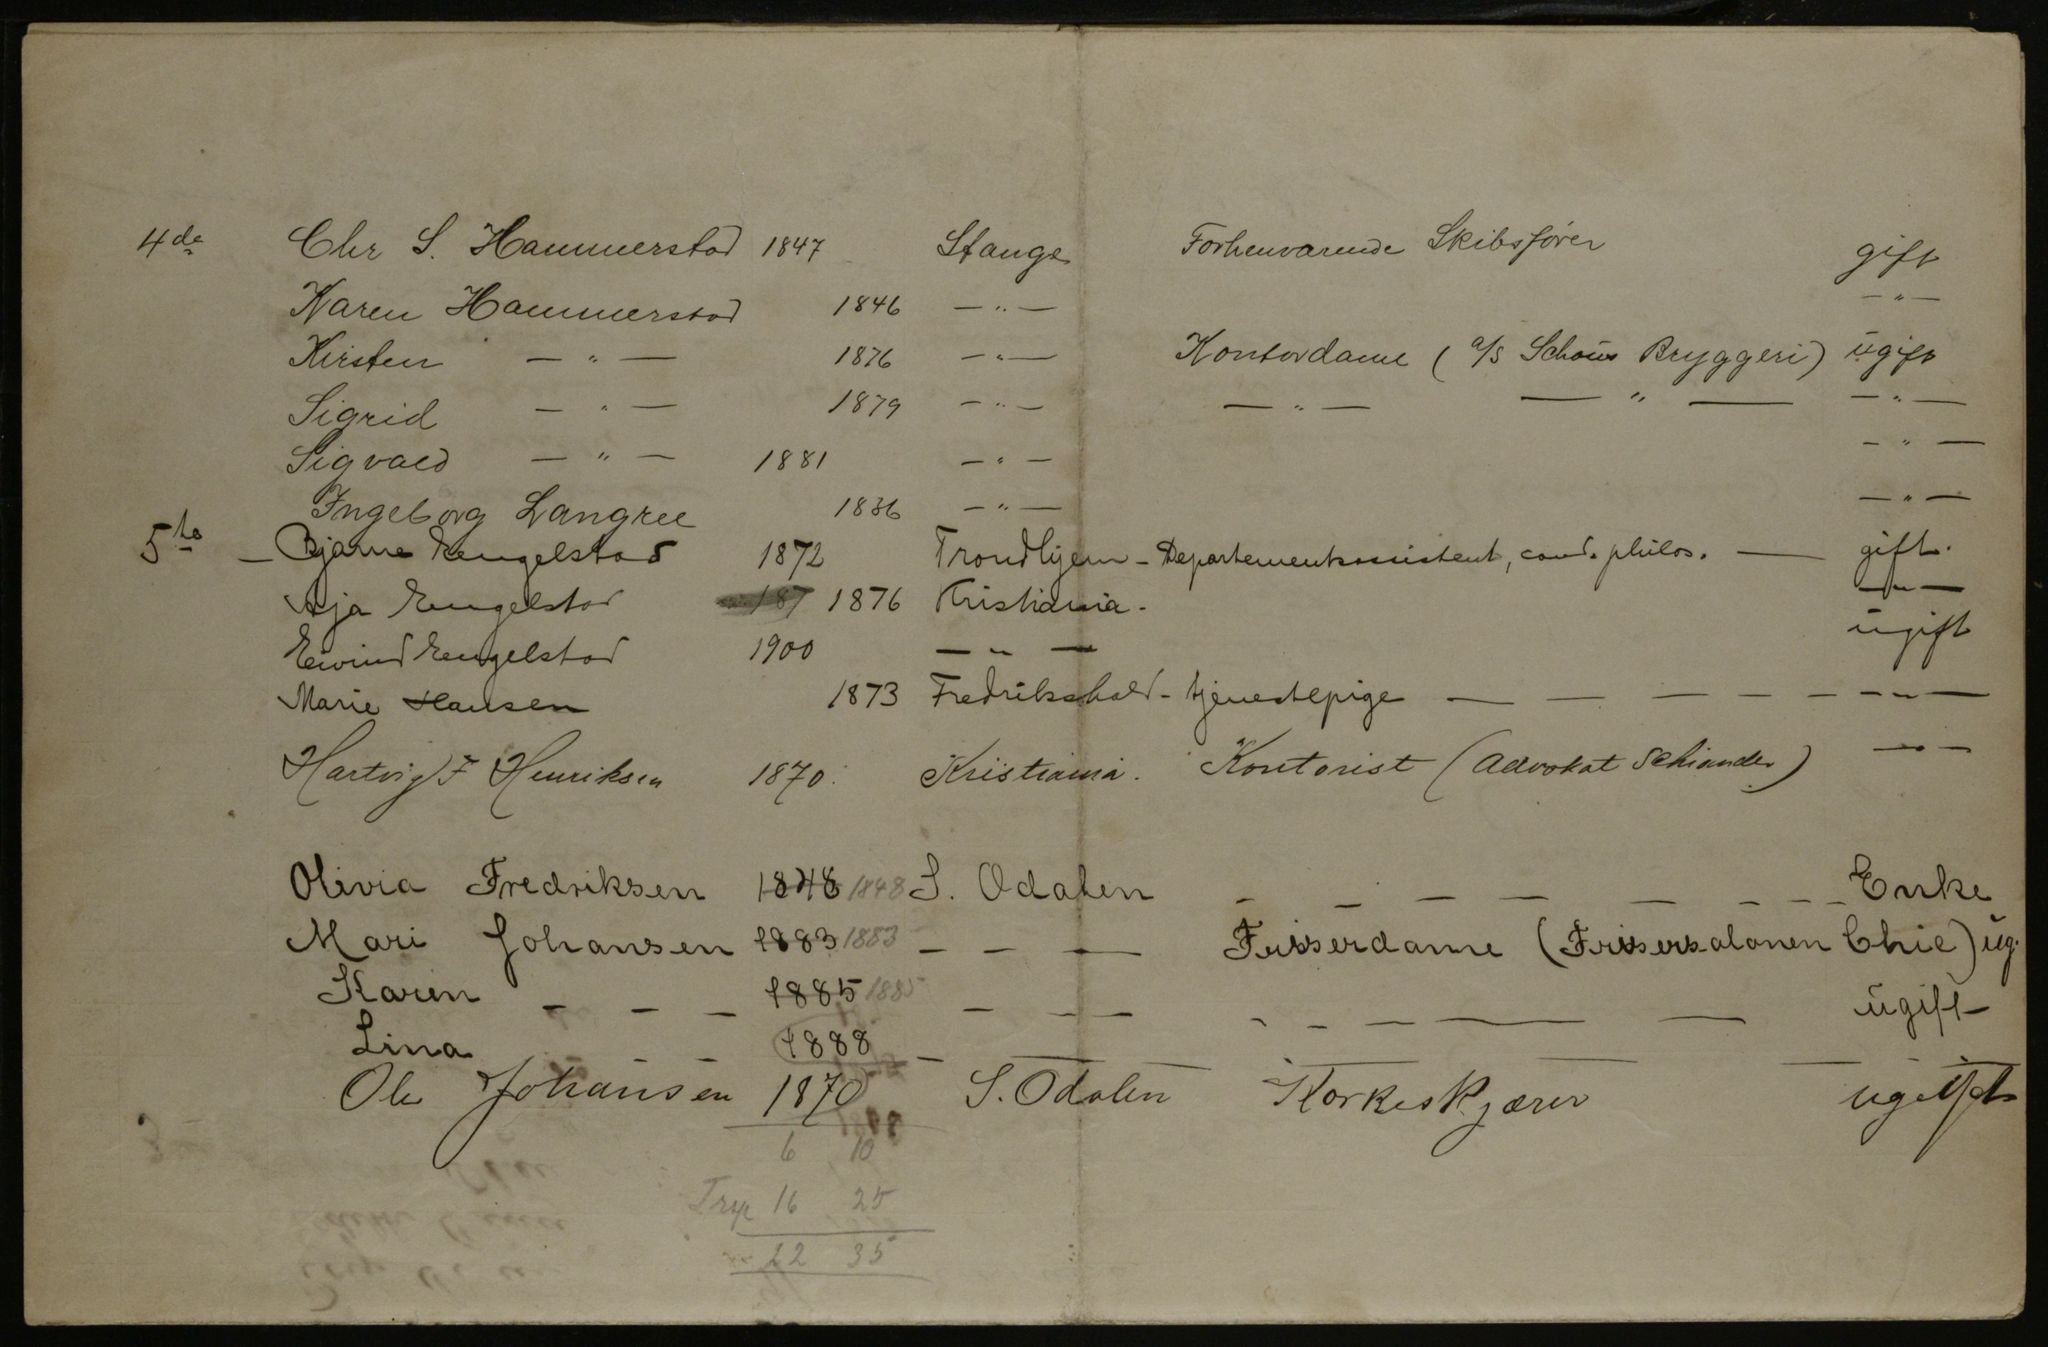 4de Chr S. Hammerstad 1847 Stange Forhenværende Skibsfører gift
Karen Hammerstad 1846 — " — — " —
Kirsten — " — 1876 — " — Kontordame (a/s Schous Bryggeri) ugift
Sigrid — " — 1879 — " — — " — — " — — " —
Sigvald — " — 1881 — " — — " —
Ingeborg Langree 1836 — " — — " —
5te — Bjarne Engelstad 1872 Trondhjem - Departementsassistent, cand. philos. — gift.
Aja Engelstad 187 1876 Kristiania. — " —
Eivind Engelstad 1900 — " — ugift
Marie Hansen 1873 Fredrikshald - tjenestepige — — — — — " —
Hartvig F Henriksen 1870. Kristiania. Kontorist (Advokat Schiander) — " —
Olivia Fredriksen 1848 1848 S. Odalen — — — — — — — Enke
Mari Johansen 1883 1883 — — — Frisserdame (Frissersalonen Chic) ug.
Karen — — — 1885 1885 — — — — — — — — ugift
Lina — — 1888 — — — — — —
Ole Johansen 1870 S. Odalen Korkeskjærer ugift
6 10
16 25
22 35